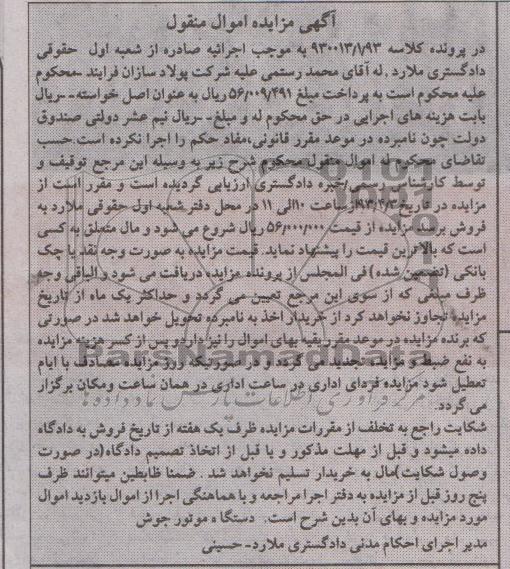 آگهی مزایده اموال منقول
در پرونده کلاسه ۹۳۰۰۱۳/۱/۹۳ به موجب اجرائیه صادره از شعبه اول حقوقی
دادگستری ملارد ,له آقای محمد رستمی علیه شرکت پولاد سازان فرایند -محکوم
علیه محکوم است به پرداخت مبلغ ۵۶/۰۰۹/۴۹۱ ریال به عنوان اصل خواسته- -ریال
بابت هزینه های اجرایی در حق محکوم له و مبلغ- -ریال نیم عشر دولتی صندوق
دولت چون نامبرده در موعد مقرر قانونی,مفاد حکم را اجرا نکرده است.حسب
تقاضای محکوم له اموال منقول محکوم شرح زیر به وسیله این مرجع توقیف و
توسط کارشناس رسمی/خبره دادگستری ارزیابی گردیده است و مقرر است از
مزایده در تاریخ ۹۳/۴/۳ از ساعت ۱۰ الی ۱۱ در محل دفتر شعبه اول حقوقی ملارد به
فروش برسد مزایده از قیمت ۵۶/۰۰۰/۰۰۰ ریال شروع می شود و مال متعلق به کسی
است که بالاترین قیمت را پیشنهاد نماید. قیمت مزایده به صورت وجه نقد یا چک
بانکی (تضمین شده) فی المجلس از برنده مزایده دریافت می شود و الباقی وجه
ظرف مبلغی که از سوی این مرجع تعیین می گردد و حداکثر یک ماه از تاریخ
مزایده تجاوز نخواهد کرد از خریدار اخذ به نامبرده تحویل خواهد شد در صورتی
که برنده مزایده در موعد مقرر بقیه بهای اموال را نپردازد پس از کسر هزینه مزایده
به نفع ضبط و مزایده تجدید می گردد و در صورتیکه روز مزایده مصادف با ایام
تعطیل شود مزایده فردای اداری در ساعت اداری در همان ساعت ومکان برگزار
می گردد.
شکایت راجع به تخلف از مقررات مزایده ظرف یک هفته از تاریخ فروش به دادگاه
داده میشود و قبل از مهلت مذکور و یا قبل از اتخاذ تصمیم دادگاه(در صورت
وصول شکایت)مال به خریدار تسلیم نخواهد شد . ضمنا طابطین میتوانند ظرف
پنج روز قبل از مزایده به دفتر اجرا مراجعه و با هماهنگی اجرا از اموال بازدید اموال
مورد مزایده و بهای آن بدین شرح است. دستگاه موتور جوش
مدیر اجرای احکام مدنی دادگستری ملارد- حسینی
ParsNamadData